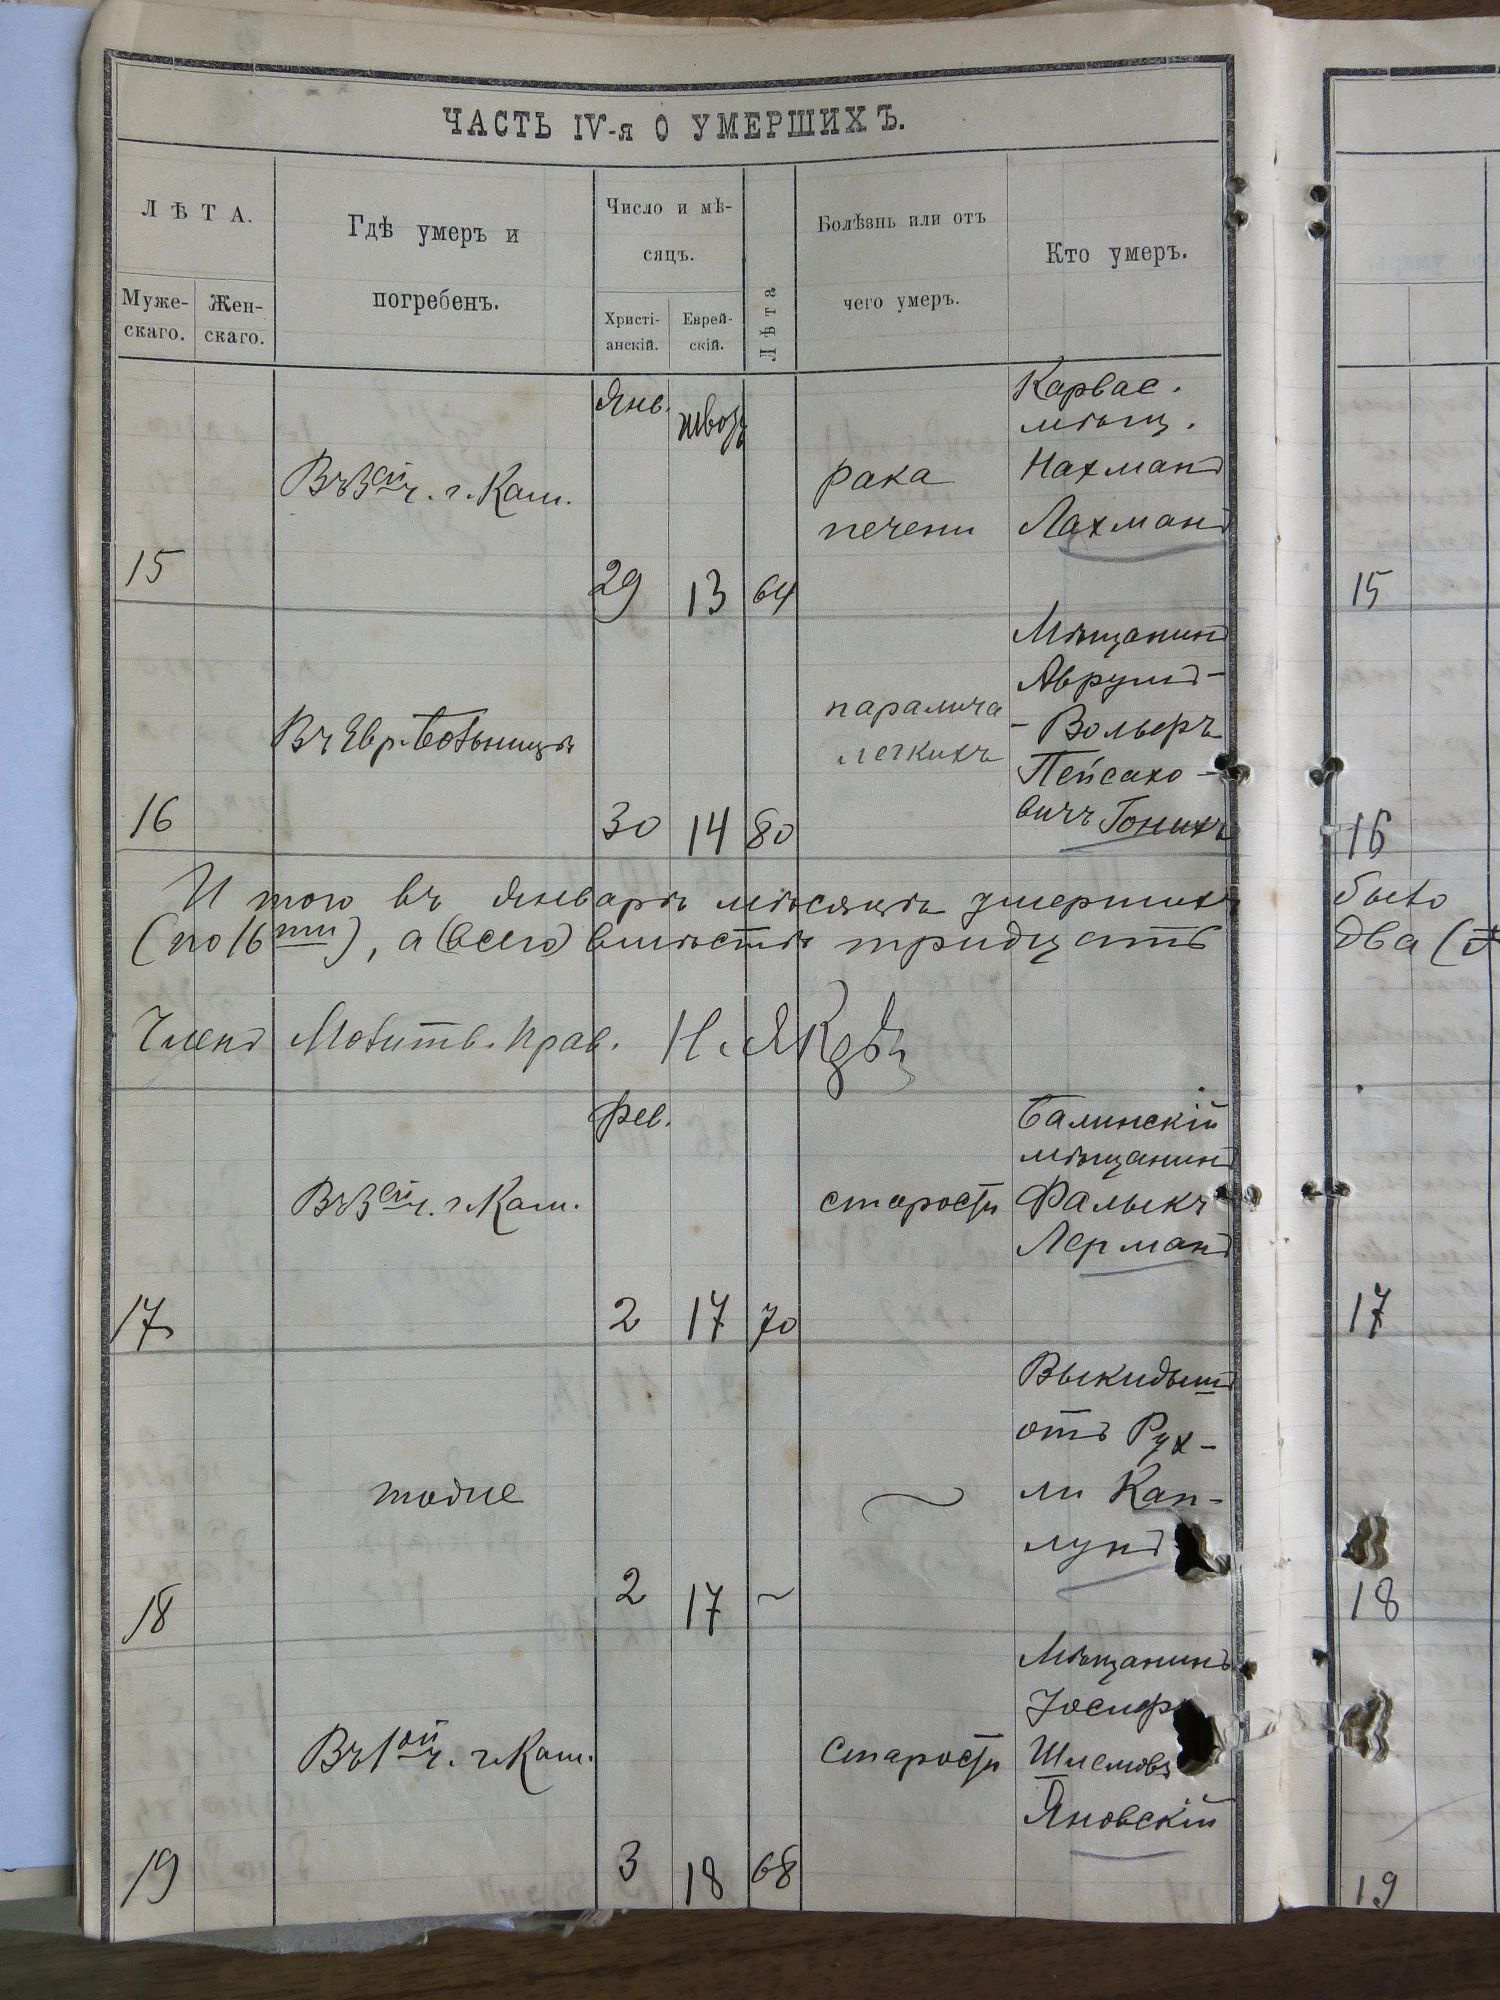 ЧАСТЬ IV-я О УМЕРШИХЪ.
ЛѢТА.
Муже-
скаго.
Жен-
скаго.
Гдѣ умеръ и
погребенъ.
Число и мѣ-
сяцъ.
Христі-
анскій.
Еврей-
скій.
Лѣта
Болѣзнь или отъ
чего умеръ.
Кто умеръ.
15
Въ 3ей ч. г. Кам.
Янв.
29
13
64
рака
печени
Карвас.
мѣщ.
Нахманъ
Лахманъ
15
16
Въ Евр. больницѣ
30
14
80
паралича
легкихъ
Мѣщанинъ
Аврумъ-
-Вольфъ
Пейсахо-
вичъ
16
Итого въ Январѣ мѣсяцѣ умершихъ было
(по 16ти), а (всего) вмѣстѣ тридцать два (
Членъ Молитв. Прав.
17
Въ 3ей ч. г. Кам.
Фев.
2
17
70
старости
Балинскій
мѣщанинъ
Фалыкъ
Лерманъ
17
18
тоже
2
17
~
~
Выкидышъ
отъ Рух-
ли Кап-
лунъ
18
19
Въ 1ой ч. г. Кам.
3
18
68
старости
Мѣщанинъ
Іосифъ
Шлемовъ
Яновскій
19